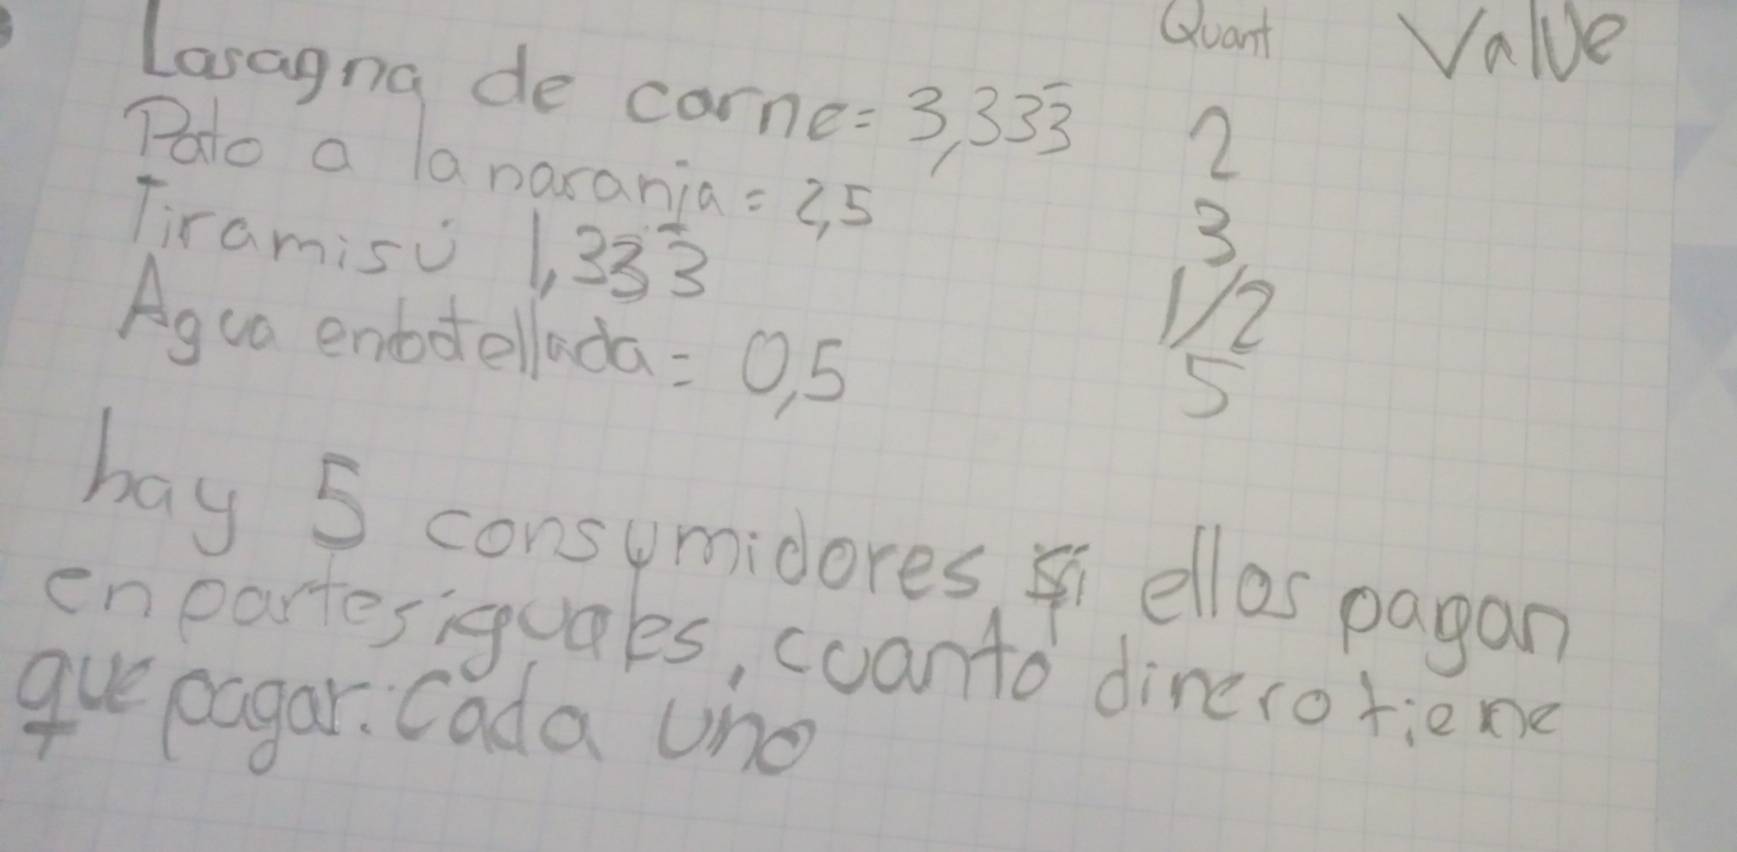 Quant Value
Lasagna de carne= 3,33̅3̅ 2
Pato a la naranja= 2,5 3
Tiramisú 1,333̅ 1/2
Agua enbotellada= 0,5 5
hay 5 consumidores, si ellos pagan
en partes iguales, cuanto dinero tiene
que pagar. Cada uno